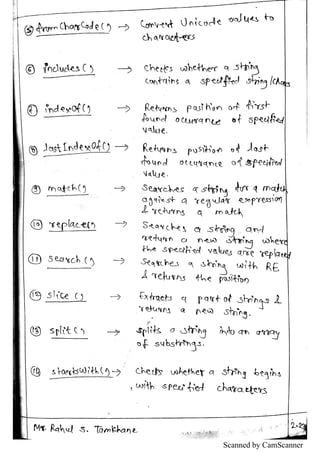 ⑤ fromCharCode() → Convert Unicode values to
characters
⑥ includes() → Checks whether a string
contains a specified string/chars
⑦ indexOf() → Returns position of first
found occurrance of specified
value.
⑧ lastIndexOf() → Returns position of last
found occurrance of specified
value.
⑨ match() → Searches a string for a match
against a regular expression
& returns a match
⑩ replace() → Searches a string and
return a new string where
the specified values are replaced
⑪ search() → Searches a string with RE
& returns the position
⑫ slice() → Extracts a part of strings &
returns a new string.
⑬ split() → splits a string into an array
of substrings.
⑭ startswith() → checks whether a string begins
with specified characters
Mr. Rahul S. Tamkhane
Scanned by CamScanner